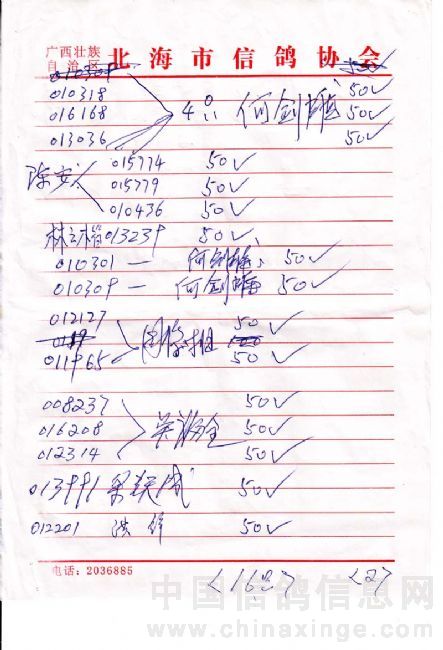 广西壮族
自治区 北海市信鸽协会
010309 50✓
010318 50✓
016168 4只 何剑雄 50✓
013036 50✓
015774 50✓
陈安 015779 50✓
010436 50✓
林 013239 50✓
010301 — 何剑雄 50✓
010309 — 何剑雄 50✓
012127 50✓
011965 50✓
008237 50✓
016208 50✓
012314 50✓
013991 梁 成 50✓
012201 洪 50✓
电话：2036885
中国信鸽信息网
www.chinaxinge.com